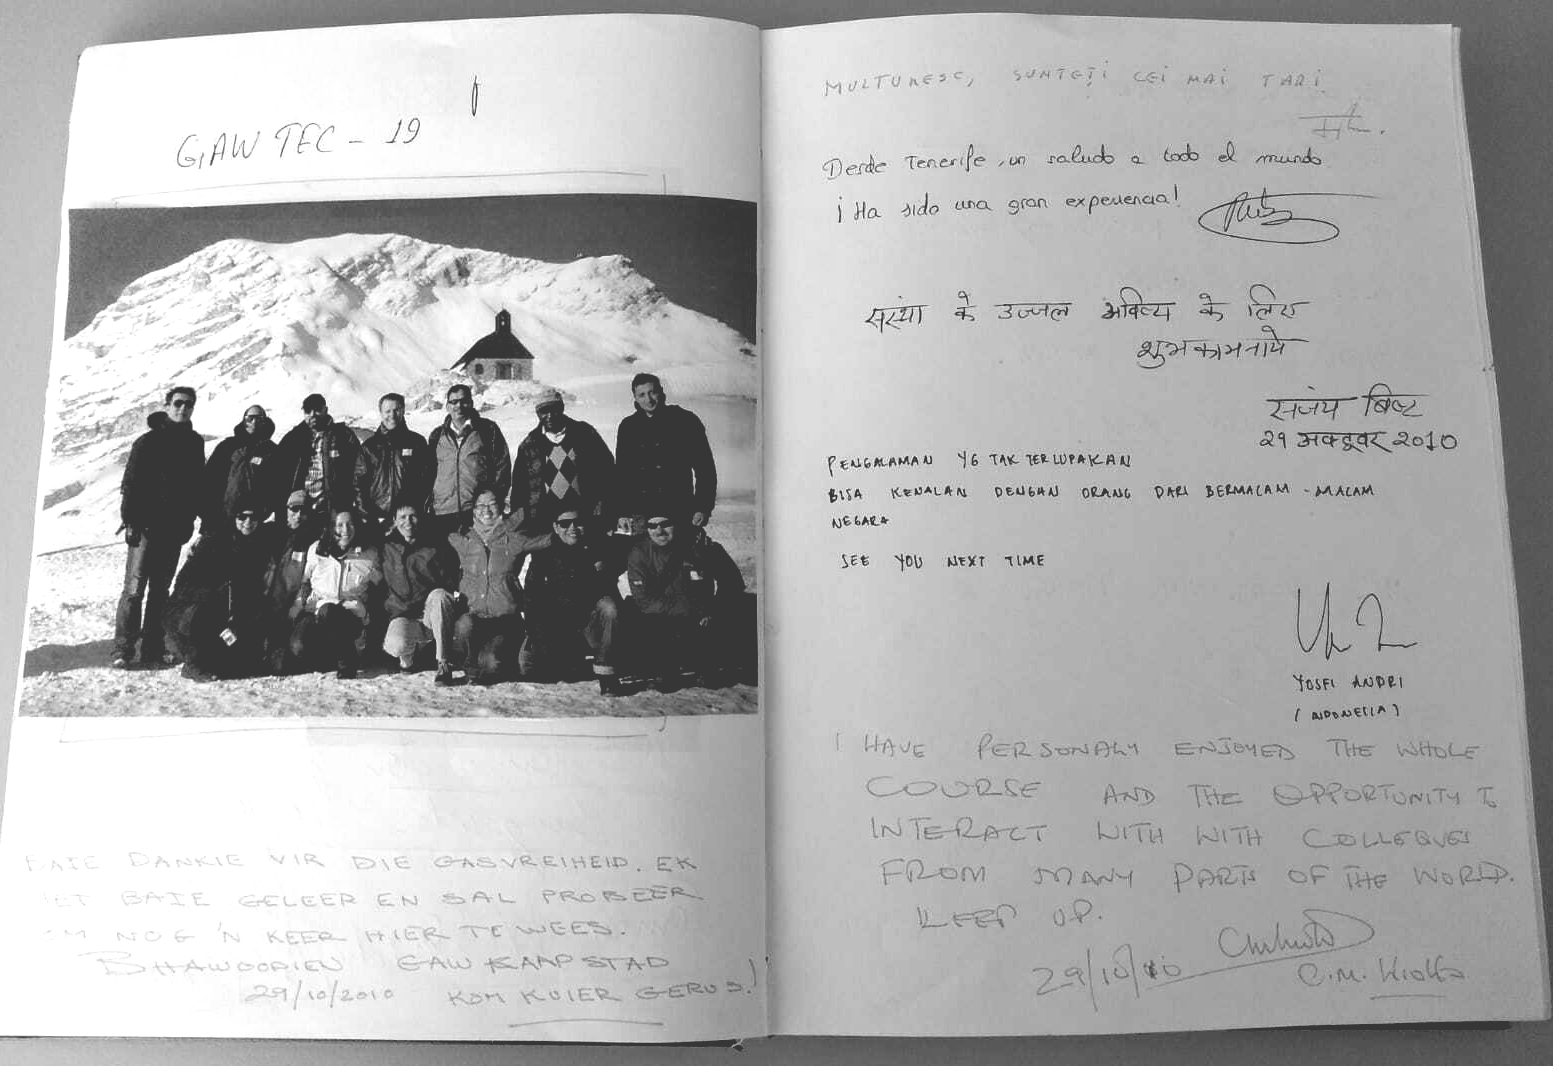 GAWTEC - 19
BAIE DANKIE VIR DIE GASVREIHEID. EK
HET BAIE GELEER EN SAL PROBEER
OM NOG 'N KEER HIER TE WEES.
BHAWOORIEN GAW KAAPSTAD
29/10/2010 KOM KUIER GERUS!
MULTUMESC, SUNTEȚI CEI MAI TARI.
Desde Tenerife, un saludo a todo el mundo
¡Ha sido una gran experiencia!
संस्था के उज्जल भविष्य के लिए
शुभकामनाये
संजय बिष्ट
29 अक्टूवर 2010
PENGALAMAN YG TAK TERLUPAKAN
BISA KENALAN DENGAN ORANG DARI BERMACAM - MACAM
NEGARA
SEE YOU NEXT TIME
YOSFI ANDRI
(INDONESIA)
I HAVE PERSONALY ENJOYED THE WHOLE
COURSE AND THE OPPORTUNITY TO
INTERACT WITH WITH COLLEGUES
FROM MANY PARTS OF THE WORLD.
KEEP UP.
29/10/10
C.M.